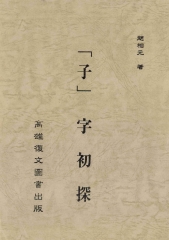 趙相元 著
「子」字初探
高雄復文圖書出版